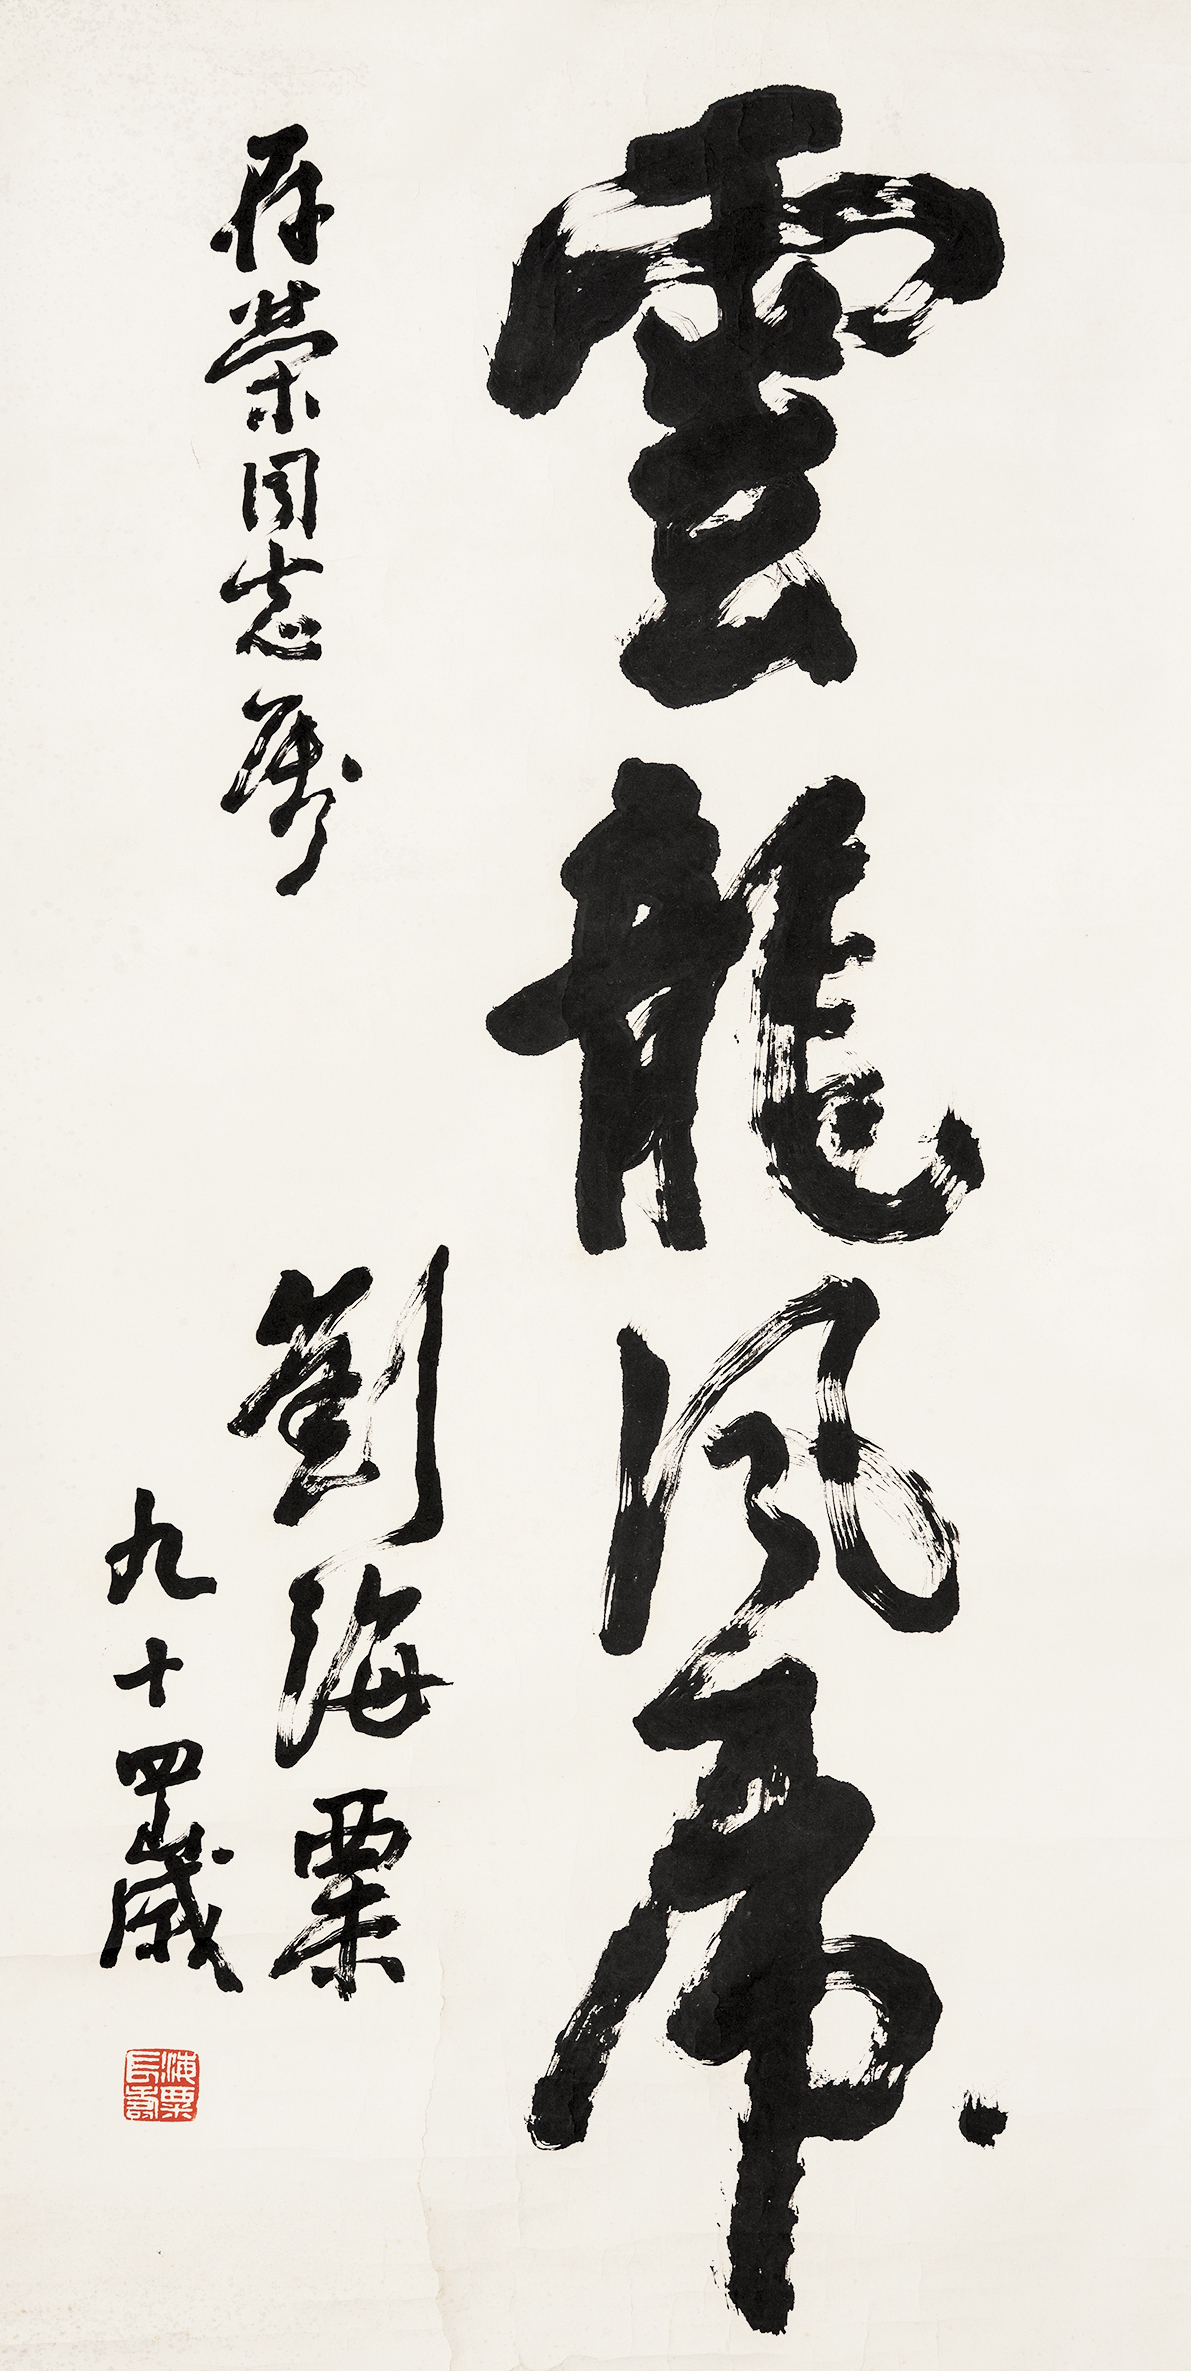 雲龍風虎
榮同志
劉海粟
九十四歲
海粟長壽